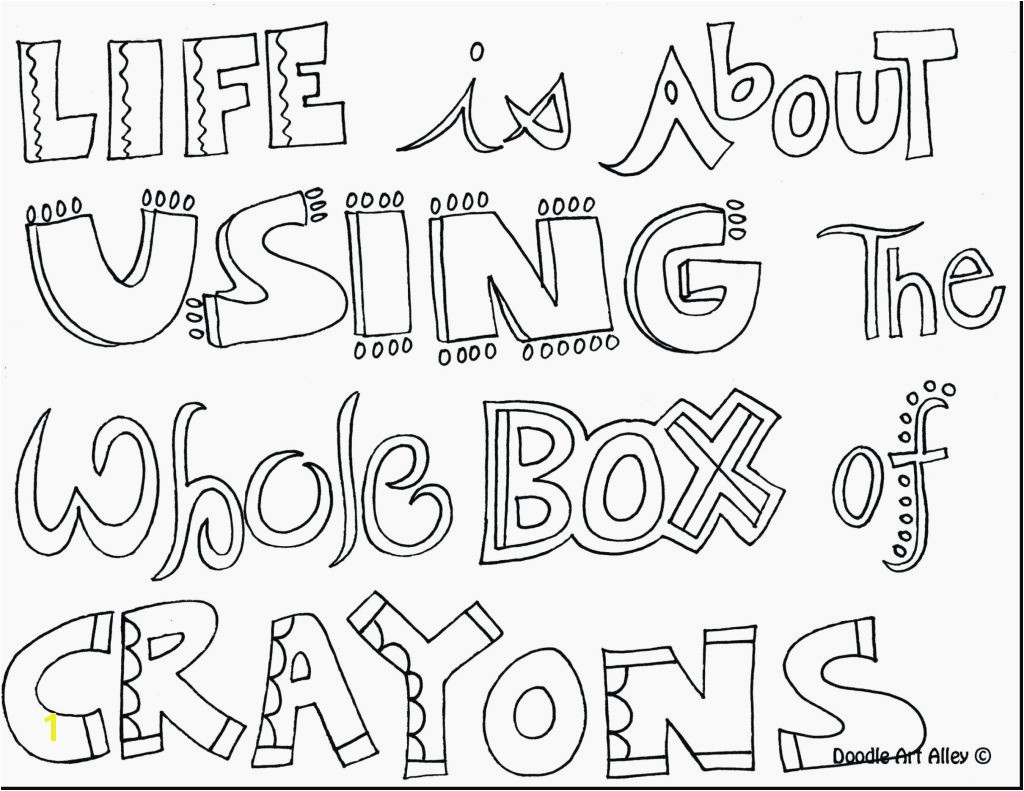 LIFE is About
USING The
Whole BOX of
CRAYONS
1
Doodle Art Alley ©